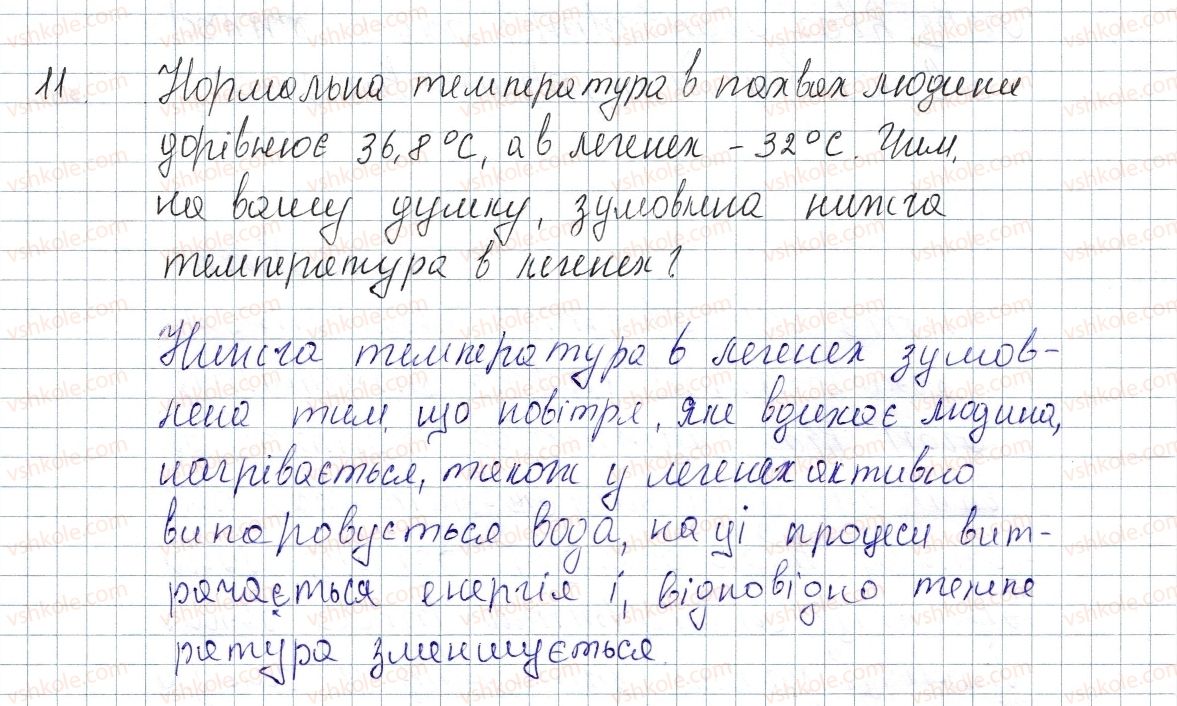 11. Нормальна температура в пахвах людини
дорівнює 36,8°С, а в легенех - 32°С. Чим,
на вашу думку, зумовлена нижча
температура в легенех?
Нижча температура в легенех зумов-
лена тим, що повітря, яке вдихає людина,
нагрівається, також у легенях активно
випаровується вода, на ці процеси вит-
рачається енергія і, відповідно темпе
ратура зменшується.